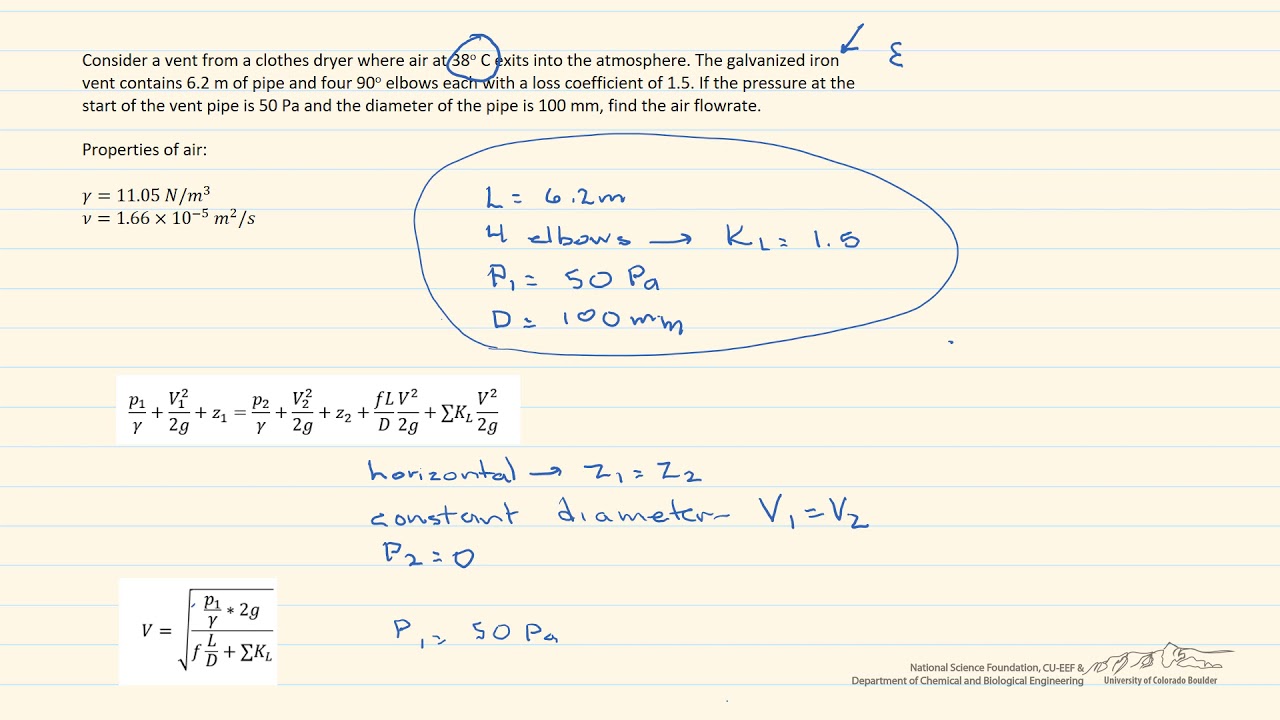 Consider a vent from a clothes dryer where air at 38° C exits into the atmosphere. The galvanized iron
vent contains 6.2 m of pipe and four 90° elbows each with a loss coefficient of 1.5. If the pressure at the
start of the vent pipe is 50 Pa and the diameter of the pipe is 100 mm, find the air flowrate.
ε
Properties of air:
γ = 11.05 N/m³
ν = 1.66 × 10⁻⁵ m²/s
L = 6.2m
4 elbows → K_L = 1.5
P₁ = 50 Pa
D = 100mm
p₁/γ + V₁²/2g + z₁ = p₂/γ + V₂²/2g + z₂ + fL/D V²/2g + ∑K_L V²/2g
horizontal → Z₁ = Z₂
constant diameter – V₁ = V₂
P₂ = 0
V = √((p₁/γ * 2g)/(f L/D + ∑K_L))
P₁ = 50 Pa
National Science Foundation, CU-EEF &
Department of Chemical and Biological Engineering
University of Colorado Boulder